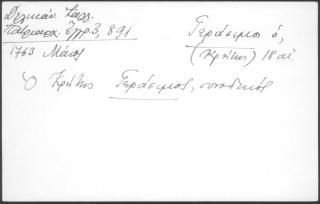 Δελικάν. Καλλ.
Πατριαρχ. Ἔγγρ. 3, 891
1763 Μάιος
Γεράσιμος ὁ,
(Κρήτης) 18 αἰ.
Ὁ Κρήτης Γεράσιμος, συνοδικός